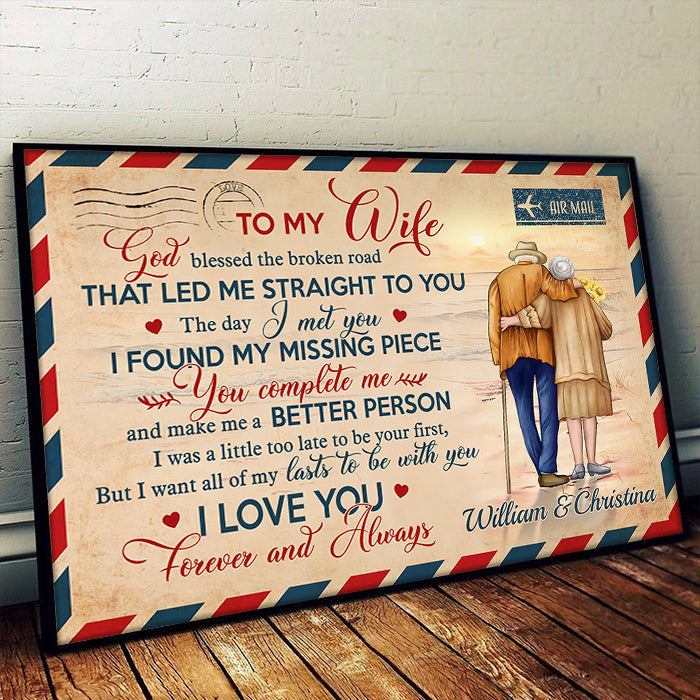 LOVE
AIR MAIL
TO MY Wife
God blessed the broken road
THAT LED ME STRAIGHT TO YOU
The day I met you
I FOUND MY MISSING PIECE
You complete me
and make me a BETTER PERSON
I was a little too late to be your first,
But I want all of my lasts to be with you
I LOVE YOU
Forever and Always
William & Christina